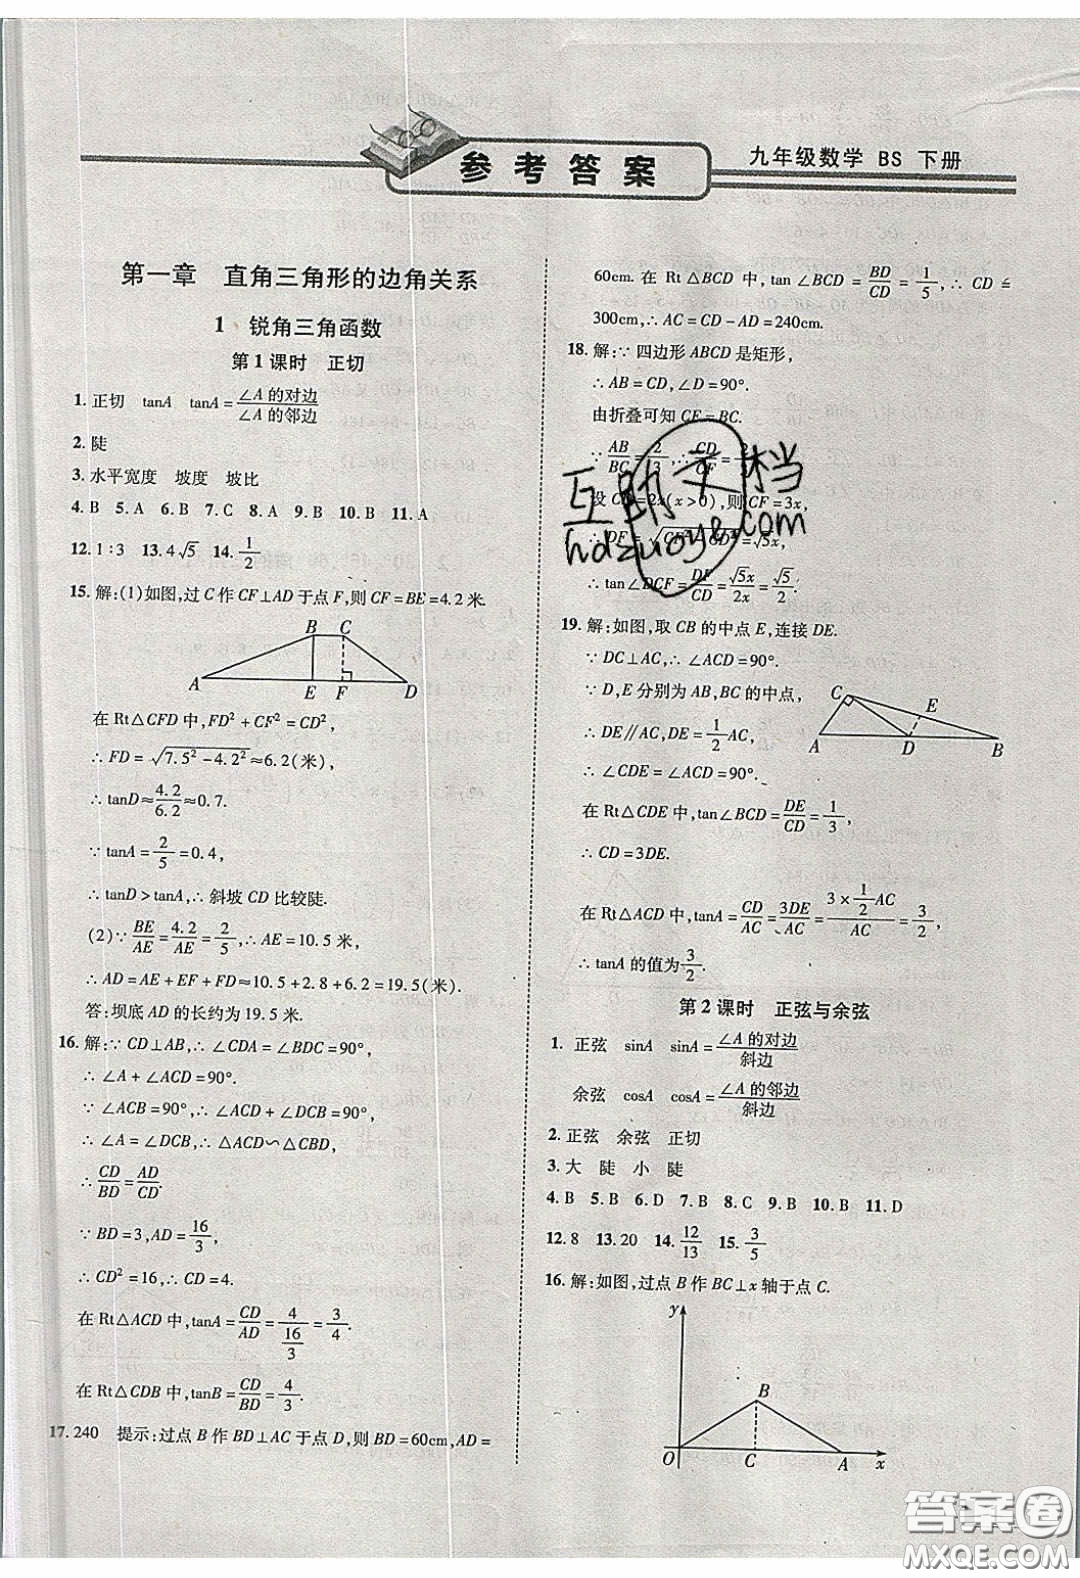 参考答案
九年级数学 BS 下册
第一章 直角三角形的边角关系
1 锐角三角函数
第1课时 正切
1.正切 tanA tanA=∠A的对边/∠A的邻边
2.陡
3.水平宽度 坡度 坡比
4.B 5.A 6.B 7.C 8.A 9.B 10.B 11.A
12.1:3 13.4√5 14.1/2
15.解:(1)如图,过C作CF⊥AD于点F,则CF=BE=4.2米.
B C
A E F D
在Rt△CFD中,FD²+CF²=CD²,
∴FD=√(7.5²-4.2²)≈6.2(米).
∴tanD≈4.2/6.2≈0.7.
∵tanA=2/5=0.4,
∴tanD>tanA,∴斜坡CD比较陡.
(2)∵BE/AE=4.2/AE=2/5,∴AE=10.5米,
∴AD=AE+EF+FD≈10.5+2.8+6.2=19.5(米).
答:坝底AD的长约为19.5米.
16.解:∵CD⊥AB,∴∠CDA=∠BDC=90°,
∴∠A+∠ACD=90°.
∵∠ACB=90°,∴∠ACD+∠DCB=90°,
∴∠A=∠DCB,∴△ACD∽△CBD,
∴CD/BD=AD/CD.
∵BD=3,AD=16/3,
∴CD²=16,∴CD=4.
在Rt△ACD中,tanA=CD/AD=4/(16/3)=3/4.
在Rt△CDB中,tanB=CD/BD=4/3.
17.240 提示:过点B作BD⊥AC于点D,则BD=60cm,AD=
60cm.在Rt△BCD中,tan∠BCD=BD/CD=1/5,∴CD=
300cm,∴AC=CD-AD=240cm.
18.解:∵四边形ABCD是矩形,
∴AB=CD,∠D=90°.
由折叠可知CE=BC.
∵AB/BC=2/3,∴CD/CF=2/3.
设CD=2x(x>0),则CF=3x,
∴DF=√(CF²-CD²)=√5x,
∴tan∠DCF=DF/CD=√5x/2x=√5/2.
19.解:如图,取CB的中点E,连接DE.
∵DC⊥AC,∴∠ACD=90°.
∵D,E分别为AB,BC的中点,
∴DE∥AC,DE=1/2AC,
∴∠CDE=∠ACD=90°.
C E
A D B
在Rt△CDE中,tan∠BCD=DE/CD=1/3,
∴CD=3DE.
在Rt△ACD中,tanA=CD/AC=3DE/AC=(3×1/2AC)/AC=3/2,
∴tanA的值为3/2.
第2课时 正弦与余弦
1.正弦 sinA sinA=∠A的对边/斜边
余弦 cosA cosA=∠A的邻边/斜边
2.正弦 余弦 正切
3.大 陡 小 陡
4.B 5.B 6.D 7.B 8.C 9.B 10.B 11.D
12.8 13.20 14.12/13 15.3/5
16.解:如图,过点B作BC⊥x轴于点C.
y
B
O C A x
互助文档
hdzuoye.com
答案卷
MXQE.COM